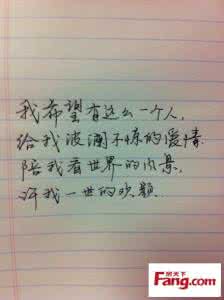 我希望有这么一个人,
给我波澜不惊的爱情
陪我看世界的风景,
许我一世的欢颜.
房天下
Fang.com